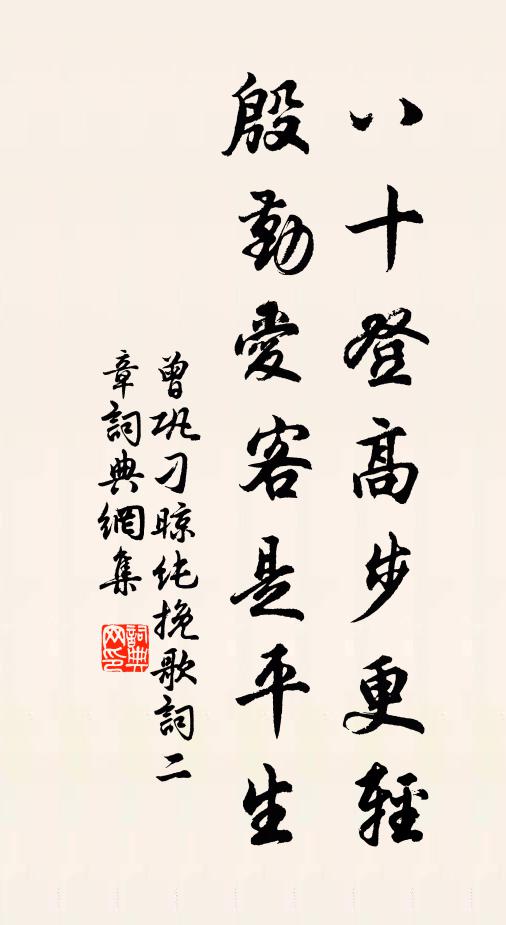 八十登高步更輕
殷勤愛客是平生
曾巩刁晾纯挽歌詞二
章詞典網集
詞典
网印